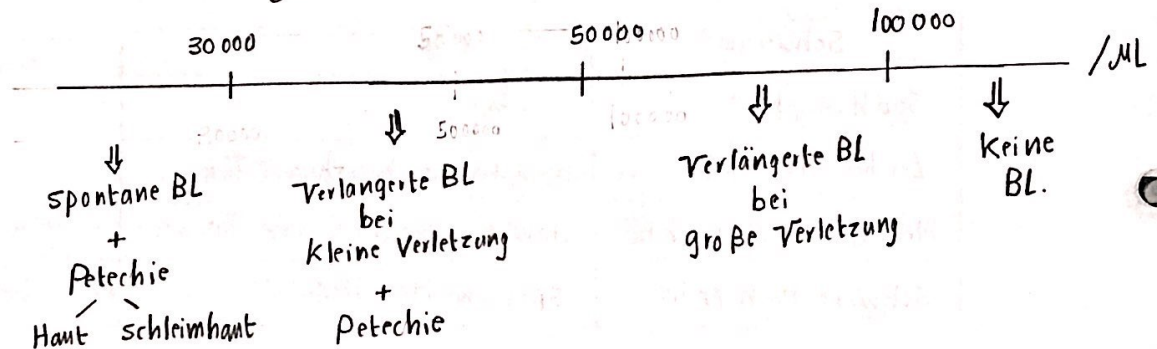 30 000 50 000 100 000 /ML
⇓ ⇓ ⇓ ⇓
spontane BL
+
Petechie
Haut schleimhaut
Verlangerte BL
bei
kleine Verletzung
+
Petechie
Verlängerte BL
bei
große Verletzung
Keine
BL.